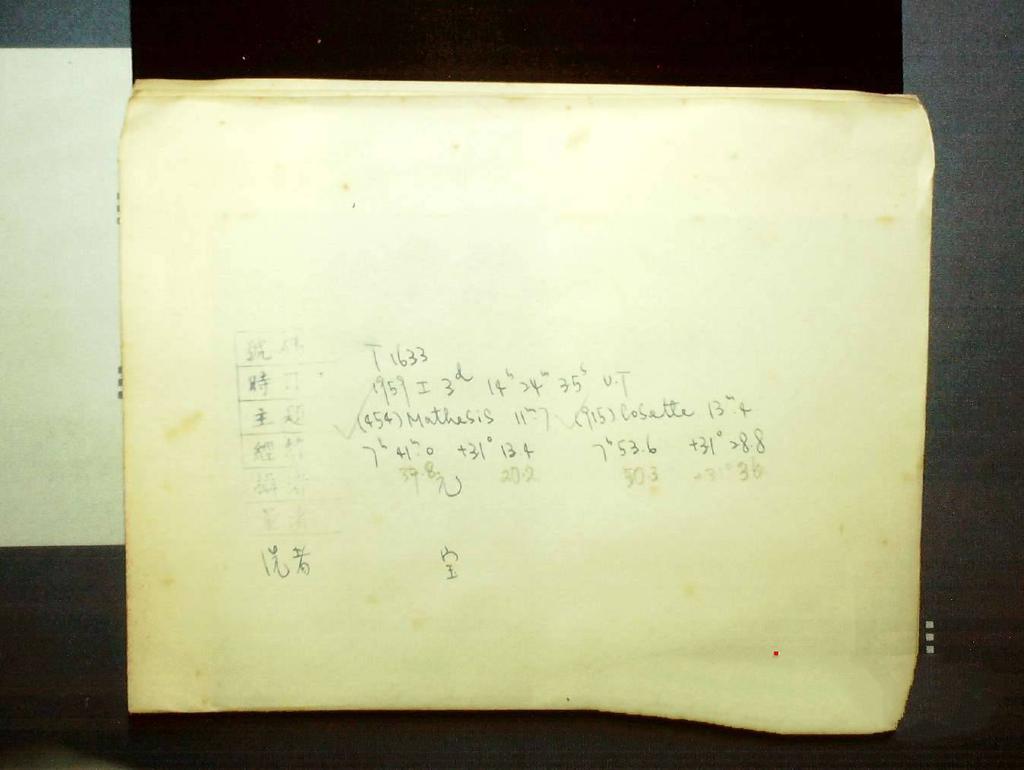 號碼 T 1633
時刻 1959 I 3ᵈ 14ʰ 24ᵐ 35ˢ U.T
主題 (454) Mathesis 11ᵐ.7 (915) Cosette 13ᵐ.4
經緯 7ʰ 41ᵐ.0 +31° 13.4 7ʰ 53.6 +31° 28.8
39.8 20.2 50.3 36
攝者 元
洗者 宝